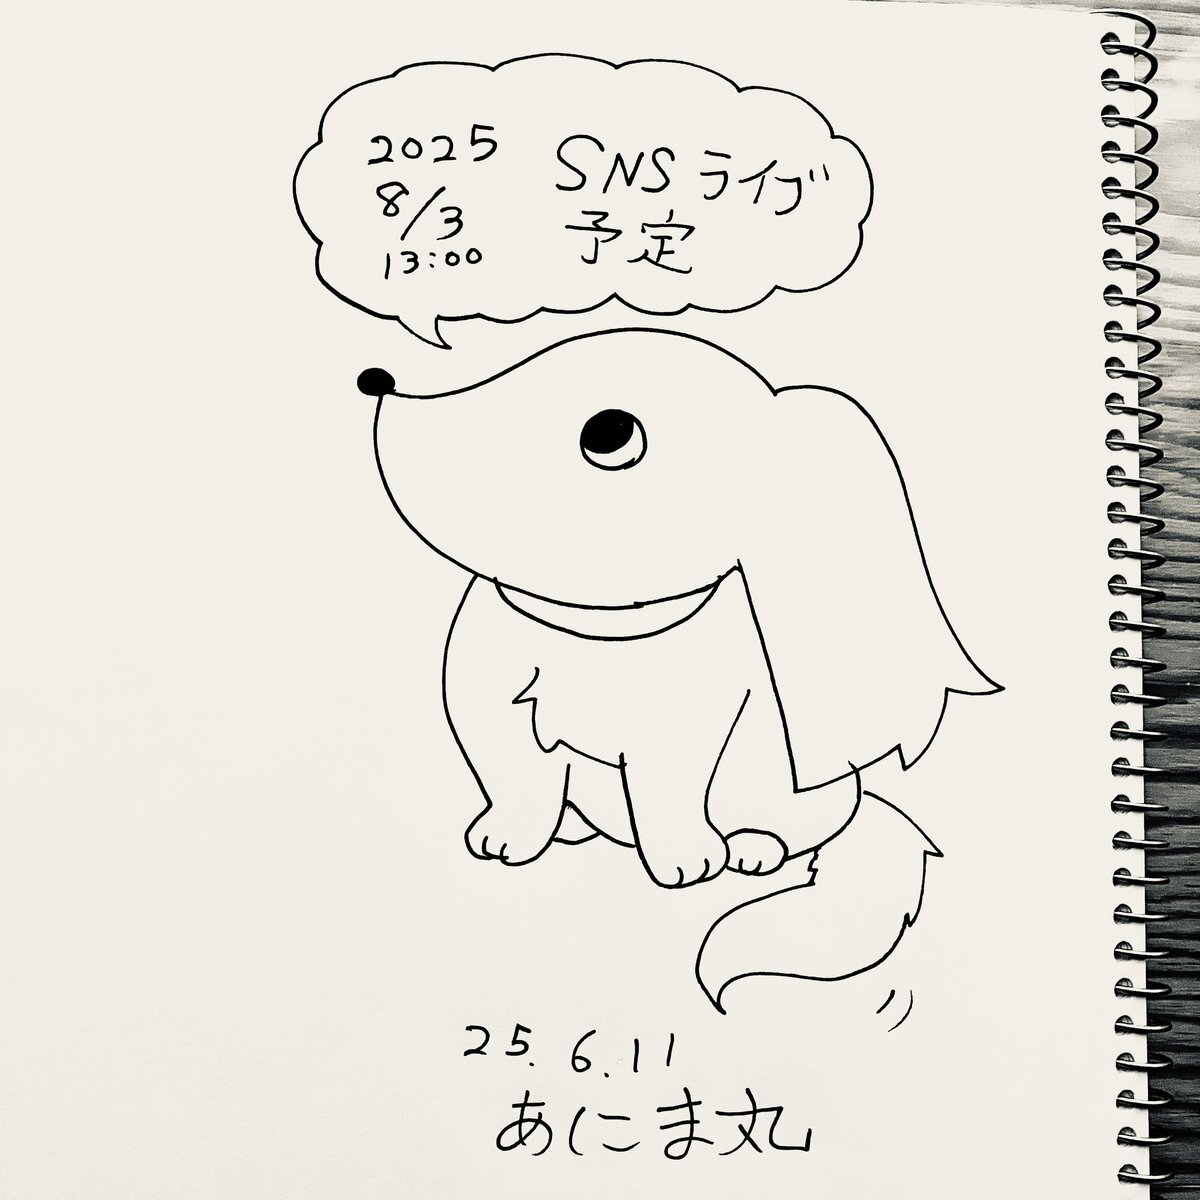 2025
8/3
13:00
SNSライブ
予定
25.6.11
あにま丸